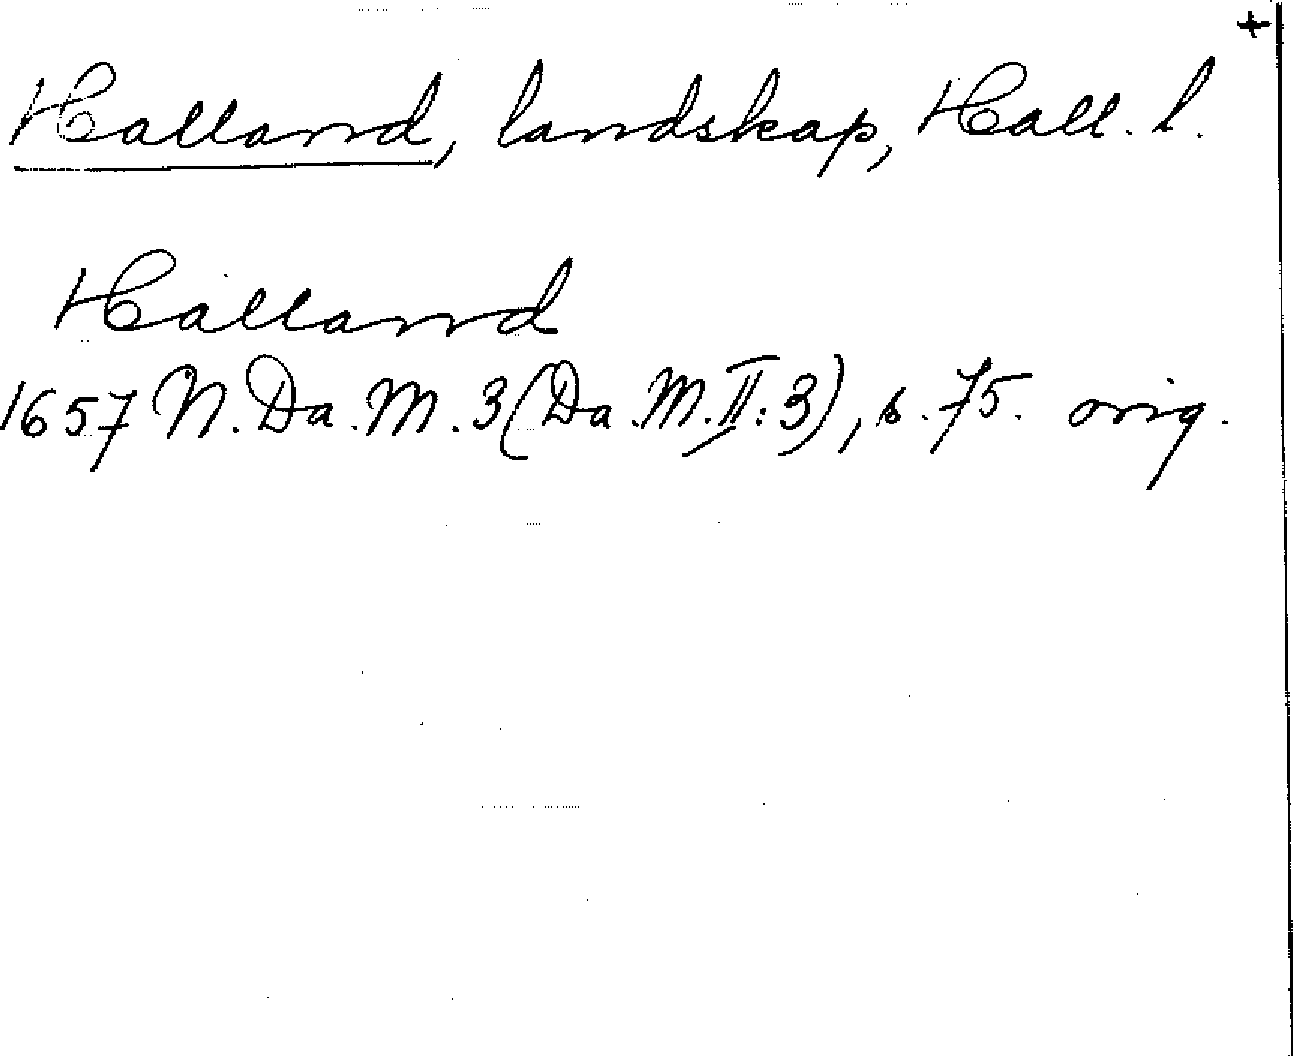 +
Halland, landskap, Hall. l.
Halland
1657 N. Da. M. 3 (Da. M. II: 3), s. 75. orig.